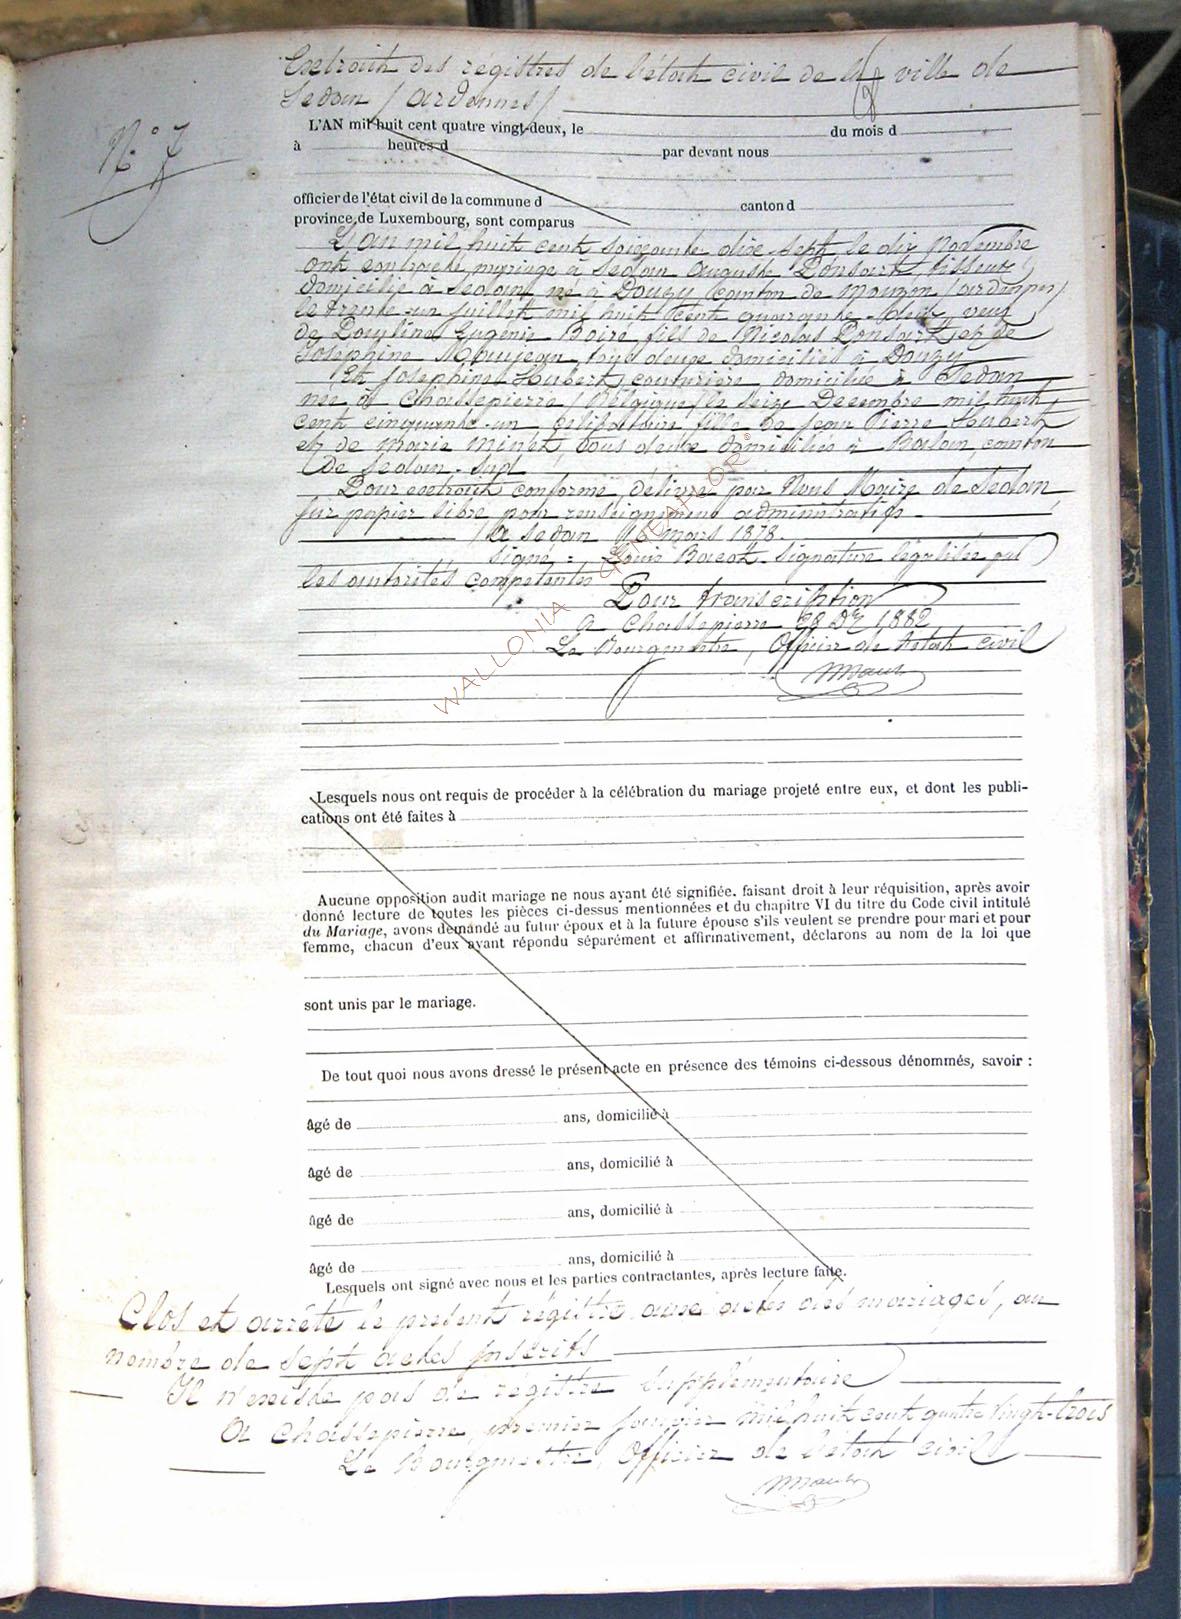 Extrait des régistres de l'état civil de la ville de
Sedan / Ardennes /
N° 7
L'AN mil huit cent quatre vingt-deux, le du mois d
à heures d par devant nous
officier de l'état civil de la commune d canton d
province de Luxembourg, sont comparus
L'an mil huit cent soixante dix-sept le dix Novembre
ont contracté mariage à Sedan Auguste Ponsart, tisseur
domicilié à Sedan, né à Douzy canton de Mouzon / Ardennes /
le trente-un juillet mil huit cent quarante-deux, veuf
de Pauline Eugénie Boiré, fils de Nicolas Ponsart et de
Joséphine Moujean, tous deux domiciliés à Douzy
Et Joséphine Hubert, couturière, domiciliée à Sedan
née à Chassepierre / Belgique / le seize Décembre mil huit
cent cinquante-un, célibataire fille de Jean Pierre Hubert
et de Marie Minet, tous deux domiciliés à Balan, canton
de Sedan-Sud
Pour extrait conforme délivré par Nous Maire de Sedan
sur papier libre pour renseignement administratif.
à Sedan 16 mars 1878.
Signé : Louis Bacot. Signature légalisée par
les autorités compétentes
Pour transcription
à Chassepierre 28 Dbre 1882
Le Bourgmestre, Officier de l'état civil
WALLONIA GENEALOR©
Lesquels nous ont requis de procéder à la célébration du mariage projeté entre eux, et dont les publi-
cations ont été faites à
Aucune opposition audit mariage ne nous ayant été signifiée. faisant droit à leur réquisition, après avoir
donné lecture de toutes les pièces ci-dessus mentionnées et du chapitre VI du titre du Code civil intitulé
du Mariage, avons demandé au futur époux et à la future épouse s'ils veulent se prendre pour mari et pour
femme, chacun d'eux ayant répondu séparément et affirmativement, déclarons au nom de la loi que
sont unis par le mariage.
De tout quoi nous avons dressé le présent acte en présence des témoins ci-dessous dénommés, savoir :
âgé de ans, domicilié à
âgé de ans, domicilié à
âgé de ans, domicilié à
âgé de ans, domicilié à
Lesquels ont signé avec nous et les parties contractantes, après lecture faite.
Clos et arrêté le présent régistre aux actes des mariages, au
nombre de sept actes inscrits
Il n'existe pas de régistre supplémentaire
A Chassepierre, premier Janvier mil huit cent quatre vingt-trois
Le Bourgmestre, Officier de l'état civil